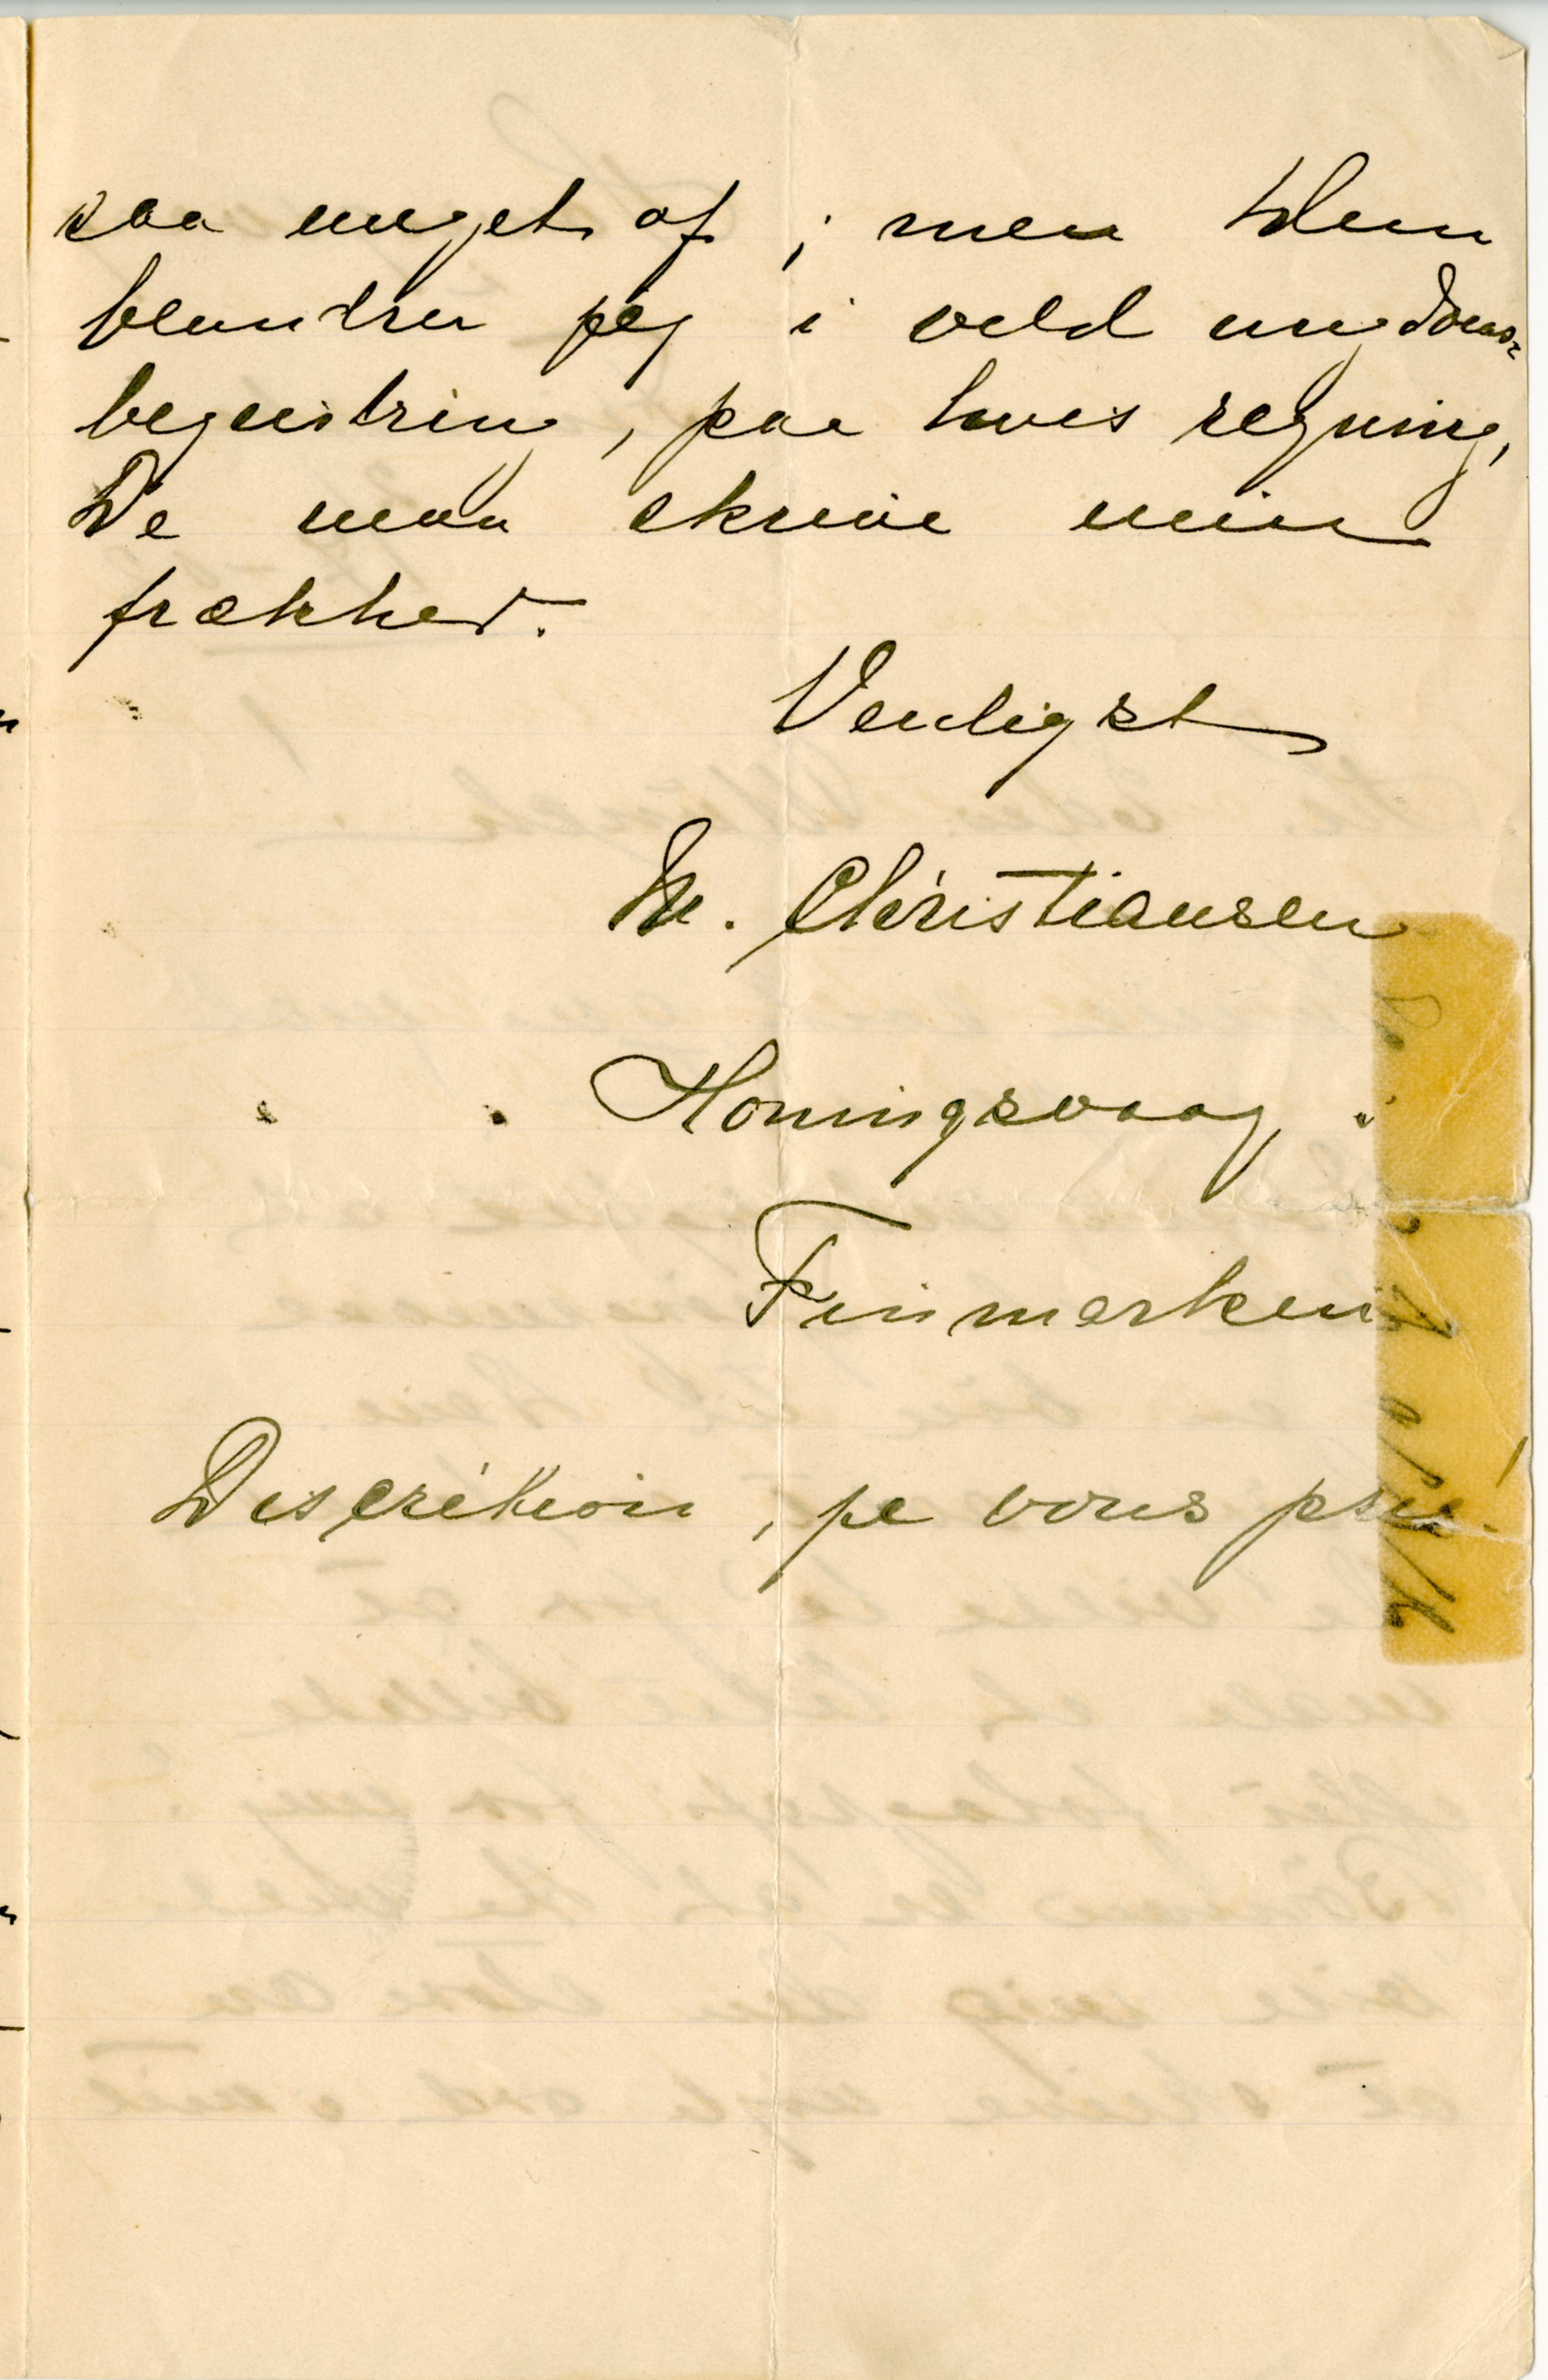 saa meget af; men Dem
beundrer jeg i vild ungdoms-
begeistring, paa hvis regning,
De maa skrive min
frækhed.
Venligst
M. Christiansen
Honningsvaag
Finmarken
Discrétion, je vous prie!